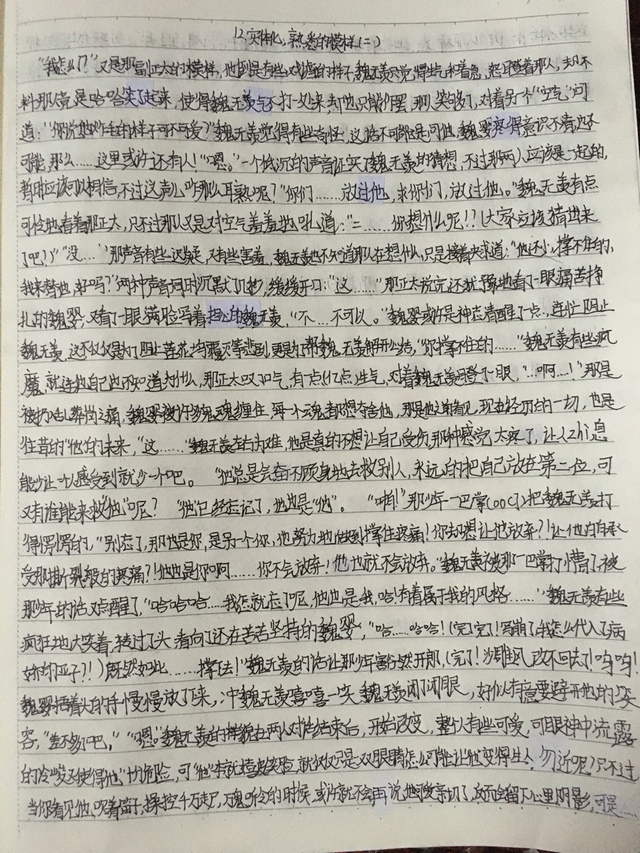 12.实体化,熟悉的模样(二)
"我怎么了?"又是那副正太的模样,他却是有些戏谑的样子,魏无羡只觉得生气和着急,怒瞪着那人,却不
料那货是哈哈笑了起来,使得魏无羡气不打一处来,却也只能作罢,那人笑够了,对着另个"空气"问
道:"你说他吃生的样子可不可爱?"魏无羡觉得有些奇怪,这话不可能是问他,魏婴疼得意识不清也不
可能,那么……这里或许还有人!"嗯。"一个低沉的声音证实了魏无羡的猜想,不过那两人应该是一起的,
暂时应该可以相信,不过这声儿咋那么耳熟呢?"你们……放过他,求你们,放过他。"魏无羡有点
可怜地看着那正太,只不过那人又是对空气羞羞地吼道:"二……你想什么呢!?(大家应该猜出来
了吧?)""没……"那声音有些迟疑,又有些害羞,魏无羡也不知道那人在想什么,只是接着求道:"他还小,撑不住的,
我来替他,好吗?"两种声音同时沉默了几秒,缓缓开口:"这……"那正太说完还犹豫地看了一眼痛苦挣
扎的魏婴,又看了一眼满脸写着担心的魏无羡,"不…不可以。"魏婴或许是神志清醒了点,连忙阻止
魏无羡,这不仅仅是为了阻止莲花坞覆灭等悲剧,更是为帮魏无羡解开心结,"你撑不住的……"魏无羡有些疯
魔,就连他自己也不知道为什么,那正太叹口气,有点亿点生气,对着魏无羡瞪了一眼,"…啊…!"那是
被扔乱葬岗之痛,魏婴被许多魂魄缠住,每一个魂都想夺舍他,那是他没看见,现在经历的一切,也是
往昔的"他的未来,"这……"魏无羡左右为难,他是真的不想让自己受伤,那种感觉太疼了,让人窒息,
能少让一个人感受到就少一个吧。 "他总是会奋不顾身地去救别人,永远的把自己放在第二位,可
又有谁能来救"他"呢? "他"已经忘记了,他也是"他"。 "啪!"那少年一巴掌(OOC)把魏无羡打
得愣愣的,"别忘了,那也是你,是另一个你,他努力地做到撑住疼痛!你却想让他放弃?!让他白白承
受那撕心裂般的疼痛?!他也是你啊……你不会放弃!他也就不会放弃。"魏无羡被那一巴掌打懵了,被
那少年的话又点醒了,"哈哈哈…我怎就忘了呢,他也是我,哈!有着属于我的风格……"魏无羡有些
疯狂地大笑着,转过了头,看向了还在苦苦坚持的魏婴,"哈…哈哈!(完了完了!写崩了,我怎么代入了病
娇的亚子?!)既然如此……撑住!"魏无羡的话让那少年豁然开朗,(完了!沙雕风改不回去了!呜呜!
魏婴捂着头的手慢慢放了下来,冲魏无羡嘻嘻一笑,魏无羡闭了闭眼,好似有意要避开他的笑
容,"差不多了吧。" "嗯。"魏无羡的样貌在两人对话结束后,开始改变,整个人有些可爱,可眼神中流露
的冷峻又使得他十分危险,可"他"本就爱笑,就仅仅只是一双眼睛怎么可能让他变得生人勿近呢?只不过
当你看见他,吹着笛子,操控千万走尸,万魂听令的时候,或许就不会再说他可爱亲切了,反而会留下心里阴影,可是……